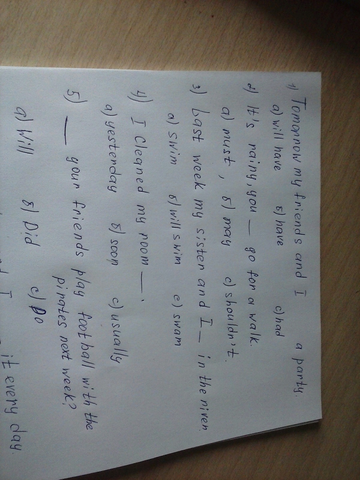 1) Tomorrow my friends and I a party
a) will have b) have c) had
2) It's rainy, you __ go for a walk.
a) must, b) may c) shouldn't.
3) Last week my sister and I __ in the river
a) swim b) will swim c) swam
4) I cleaned my room __.
a) yesterday b) soon c) usually
5) __ your friends play football with the
pirates next week?
a) Will b) Did c) Do
I it every day